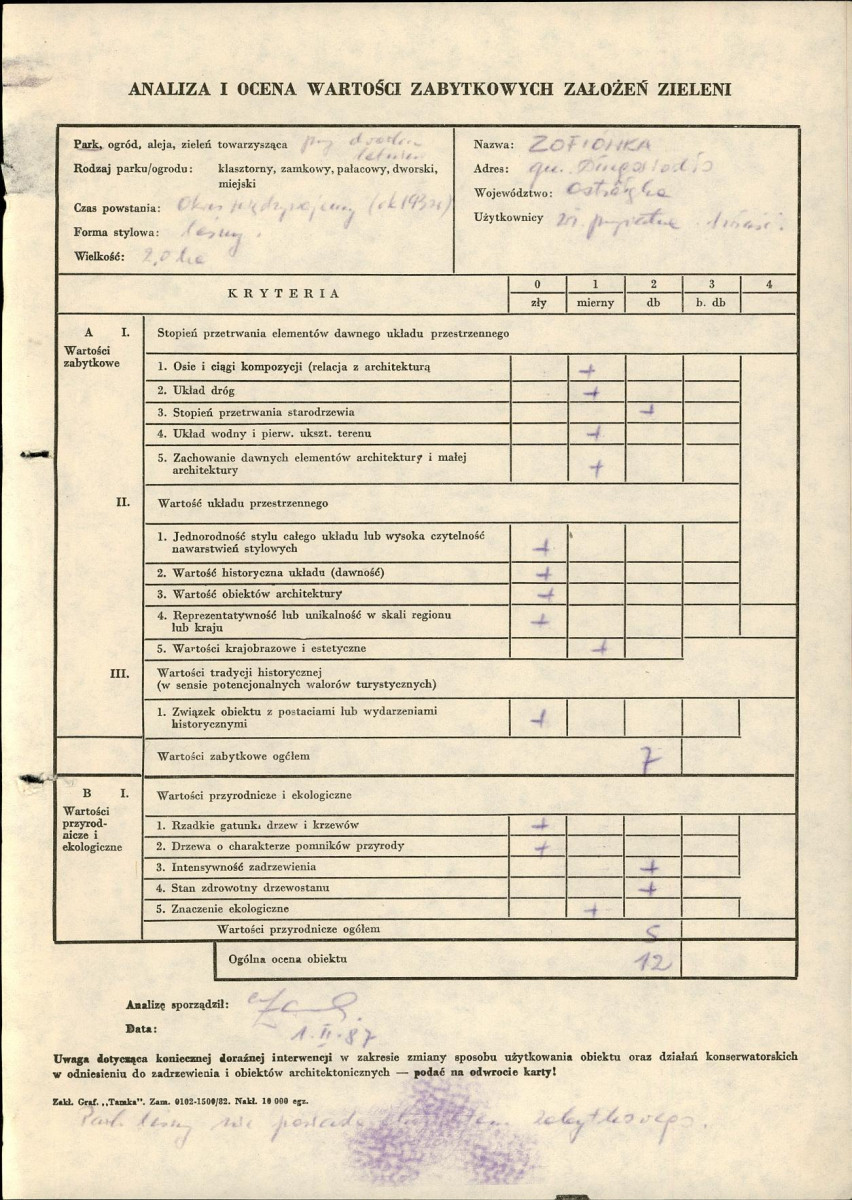 ANALIZA I OCENA WARTOŚCI ZABYTKOWYCH ZAŁOŻEŃ ZIELENI
Park, ogród, aleja, zieleń towarzysząca przy
Rodzaj parku/ogrodu: klasztorny, zamkowy, pałacowy, dworski,
miejski
Czas powstania: Okres międzywojenny
Forma stylowa: leśny.
Wielkość: 2,0 ha
Nazwa: ZOFIÓWKA
Adres: gm. Długosiodło
Województwo: Ostrołęka
Użytkownicy
KRYTERIA
0 1 2 3 4
zły mierny db b. db
A I. Stopień przetrwania elementów dawnego układu przestrzennego
Wartości
zabytkowe
1. Osie i ciągi kompozycji (relacja z architekturą +
2. Układ dróg +
3. Stopień przetrwania starodrzewia +
4. Układ wodny i pierw. ukszt. terenu +
5. Zachowanie dawnych elementów architektury i małej
architektury +
II. Wartość układu przestrzennego
1. Jednorodność stylu całego układu lub wysoka czytelność
nawarstwień stylowych +
2. Wartość historyczna układu (dawność) +
3. Wartość obiektów architektury +
4. Reprezentatywność lub unikalność w skali regionu
lub kraju +
5. Wartości krajobrazowe i estetyczne +
III. Wartości tradycji historycznej
(w sensie potencjonalnych walorów turystycznych)
1. Związek obiektu z postaciami lub wydarzeniami
historycznymi +
Wartości zabytkowe ogółem 7
B I. Wartości przyrodnicze i ekologiczne
Wartości
przyrod-
nicze i
ekologiczne
1. Rzadkie gatunki drzew i krzewów +
2. Drzewa o charakterze pomników przyrody +
3. Intensywność zadrzewienia +
4. Stan zdrowotny drzewostanu +
5. Znaczenie ekologiczne +
Wartości przyrodnicze ogółem 5
Ogólna ocena obiektu 12
Analizę sporządził:
Data: 1.II.87
Uwaga dotycząca koniecznej doraźnej interwencji w zakresie zmiany sposobu użytkowania obiektu oraz działań konserwatorskich
w odniesieniu do zadrzewienia i obiektów architektonicznych — podać na odwrocie karty!
Zakł. Graf. „Tamka". Zam. 0102-1500/82. Nakł. 10 000 egz.
Park leśny nie posiada zabytkowego.